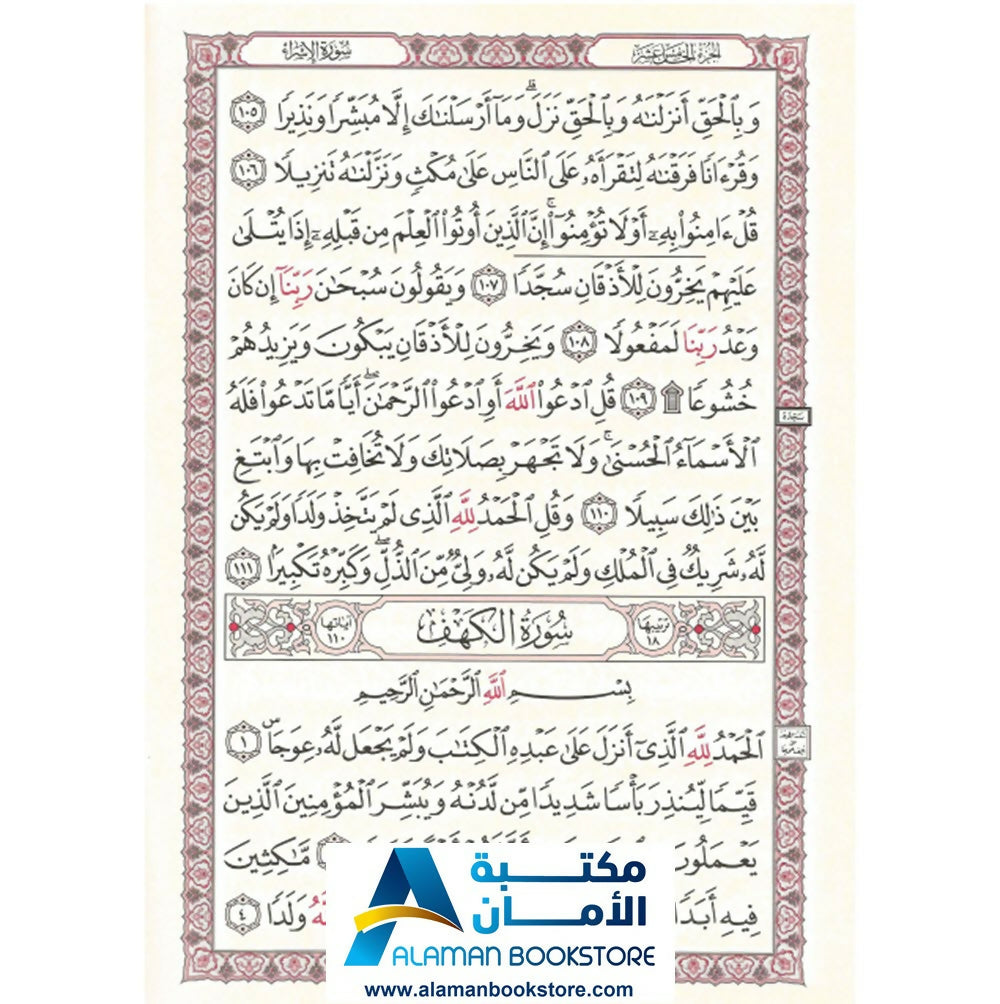 الجزء الخامس عشر
سورة الإسراء
وَبِٱلْحَقِّ أَنزَلْنَٰهُ وَبِٱلْحَقِّ نَزَلَ ۗ وَمَآ أَرْسَلْنَٰكَ إِلَّا مُبَشِّرًا وَنَذِيرًا ١٠٥
وَقُرْءَانًا فَرَقْنَٰهُ لِتَقْرَأَهُۥ عَلَى ٱلنَّاسِ عَلَىٰ مُكْثٍ وَنَزَّلْنَٰهُ تَنزِيلًا ١٠٦
قُلْ ءَامِنُوا۟ بِهِۦٓ أَوْ لَا تُؤْمِنُوٓا۟ ۚ إِنَّ ٱلَّذِينَ أُوتُوا۟ ٱلْعِلْمَ مِن قَبْلِهِۦٓ إِذَا يُتْلَىٰ
عَلَيْهِمْ يَخِرُّونَ لِلْأَذْقَانِ سُجَّدًا ١٠٧ وَيَقُولُونَ سُبْحَٰنَ رَبِّنَآ إِن كَانَ
وَعْدُ رَبِّنَا لَمَفْعُولًا ١٠٨ وَيَخِرُّونَ لِلْأَذْقَانِ يَبْكُونَ وَيَزِيدُهُمْ
خُشُوعًا ۩ ١٠٩ قُلِ ٱدْعُوا۟ ٱللَّهَ أَوِ ٱدْعُوا۟ ٱلرَّحْمَٰنَ ۖ أَيًّا مَّا تَدْعُوا۟ فَلَهُ
سجدة
ٱلْأَسْمَآءُ ٱلْحُسْنَىٰ ۚ وَلَا تَجْهَرْ بِصَلَاتِكَ وَلَا تُخَافِتْ بِهَا وَٱبْتَغِ
بَيْنَ ذَٰلِكَ سَبِيلًا ١١٠ وَقُلِ ٱلْحَمْدُ لِلَّهِ ٱلَّذِى لَمْ يَتَّخِذْ وَلَدًا وَلَمْ يَكُن
لَّهُۥ شَرِيكٌ فِى ٱلْمُلْكِ وَلَمْ يَكُن لَّهُۥ وَلِىٌّ مِّنَ ٱلذُّلِّ ۖ وَكَبِّرْهُ تَكْبِيرًۢا ١١١
ترتيبها ١٨
سُورَةُ الكَهْف
آياتها ١١٠
بِسْمِ ٱللَّهِ ٱلرَّحْمَٰنِ ٱلرَّحِيمِ
ٱلْحَمْدُ لِلَّهِ ٱلَّذِىٓ أَنزَلَ عَلَىٰ عَبْدِهِ ٱلْكِتَٰبَ وَلَمْ يَجْعَل لَّهُۥ عِوَجَا ۜ ١
قَيِّمًا لِّيُنذِرَ بَأْسًا شَدِيدًا مِّن لَّدُنْهُ وَيُبَشِّرَ ٱلْمُؤْمِنِينَ ٱلَّذِينَ
يَعْمَلُونَ مَّٰكِثِينَ
فِيهِ أَبَدًا وَلَدًا ٤
مكتبة
الأمان
ALAMAN BOOKSTORE
www.alamanbookstore.com